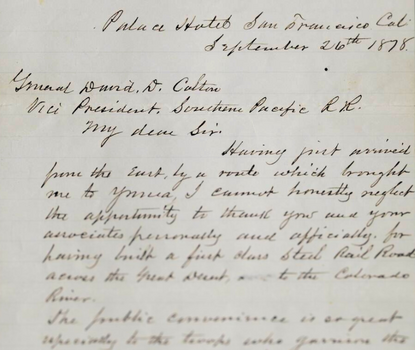 Palace Hotel San Francisco Cal
September 26th 1878.
General David. D. Colton
Vice President, Southern Pacific R.R.
My dear Sir.
Having just arrived
from the East, by a route which brought
me to Yuma, I cannot honestly neglect
the opportunity to thank you and your
associates personally and officially. for
having built a first class Steel Rail Road
across the Great Desert, to the Colorado
River.
The public convenience is so great
especially to the troops who garrison the